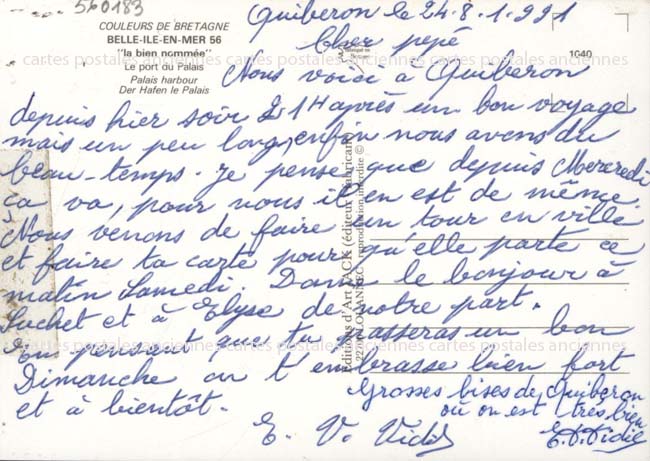 560183
COULEURS DE BRETAGNE
BELLE-ILE-EN-MER 56
"la bien nommée"
Le port du Palais
Palais harbour
Der Hafen le Palais
1040
Quiberon le 24.8.1.991
Cher pépé
Nous voici à Quiberon
depuis hier soir 21H après un bon voyage
mais un peu long, enfin nous avons du
beau-temps. Je pense que depuis Mercredi
ça va, pour nous il en est de même.
Nous venons de faire un tour en ville
et faire ta carte pour qu'elle parte ce
matin Samedi. Donne le bonjour à
Suchet et à Elyse de notre part.
En pensant que tu passeras un bon
Dimanche on t'embrasse bien fort
et à bientôt.
E. V.
Grosses bises de Quiberon
où on est très bien
Editions d'Art JACK (éditeur fabricant)
reproduction interdite ©
cartes postales anciennes cartes postales anciennes cartes postales anciennes
cartes postales anciennes cartes postales anciennes cartes postales anciennes